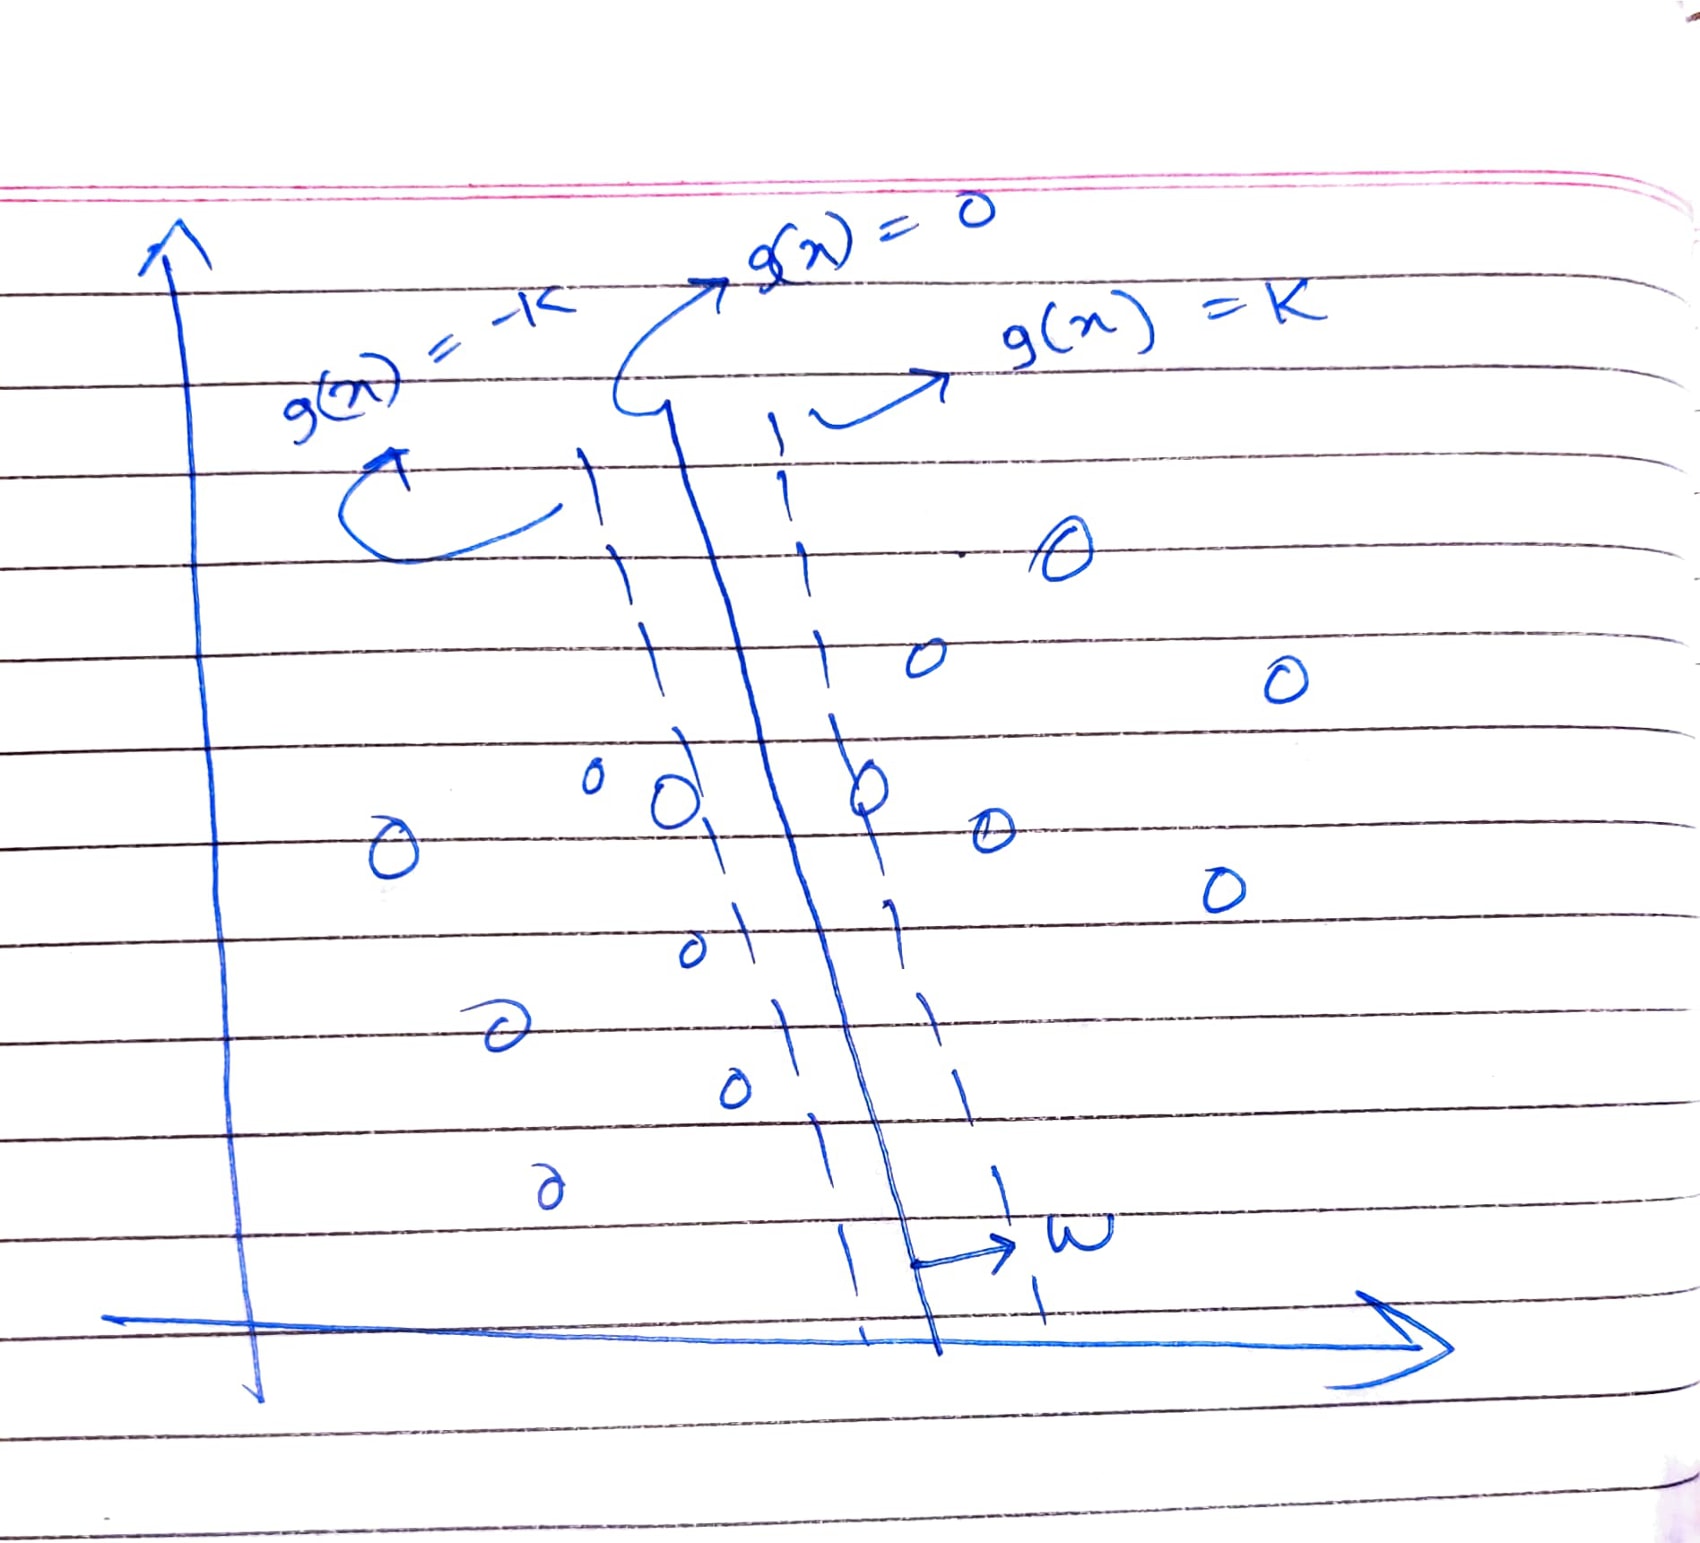 g(x) = 0
g(x) = K
g(x) = -K
W